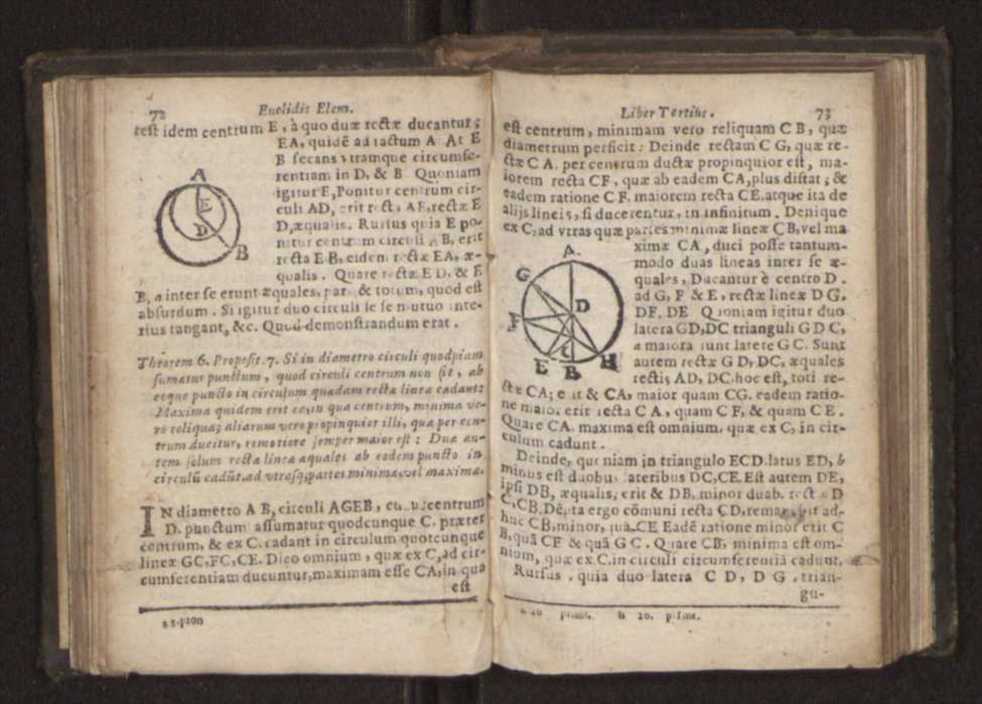 72 Euclidis Elem.
rest idem centrum E, à quo duæ rectæ ducantur;
EA, quidē ad tactum A. At E
B secans vtramque circumfe-
rentiam in D, & B. Quoniam
igitur E, Ponitur centrum cir-
culi AD, erit rect. AE, rectæ E
D, æqualis. Rursus quia E po-
nitur centrum circuli AB, erit
recta EB, eidem rectæ EA, æ-
qualis. Quare rectæ ED, & E
B, a inter se erunt æquales, pars & totum, quod est
absurdum. Si igitur duo circuli se se mutuo inte-
rius tangant, &c. Quod demonstrandum erat.
A
E
D
B
Theorem 6. Proposit. 7. Si in diametro circuli quodpiam
sumatur punctum, quod circuli centrum non sit, ab
eoque puncto in circulum quædam rectæ lineæ cadant:
Maxima quidem erit ea, in qua centrum, minima ve-
ro reliqua; aliarum vero propinquior illi, quæ per cen-
trum ducitur, remotiore semper maior est: Duæ au-
tem solum rectæ lineæ æquales ab eodem puncto in
circulū cadūt, ad vtrasq; partes minimæ, vel maximæ.
IN diametro AB, circuli AGEB, cuius centrum
D. punctum assumatur quodcunque C, præter
centrum, & ex C. cadant in circulum quotcunque
lineæ GC, FC, CE. Dico omnium, quæ ex C, ad cir-
cumferentiam ducuntur, maximam esse CA, in qua
est
Liber Tertius. 73
est centrum, minimam vero reliquam CB, quæ
diametrum perficit: Deinde rectam CG, quæ re-
ctæ CA. per centrum ductæ propinquior est, ma-
iorem recta CF, quæ ab eadem CA, plus distat; &
eadem ratione CF, maiorem recta CE. atque ita de
alijs lineis, si ducerentur, in infinitum. Denique
ex C, ad vtras quæ partes minimæ lineæ CB, vel ma
ximæ CA, duci posse tantum-
modo duas lineas inter se æ-
quales, Ducantur è centro D.
ad G, F & E, rectæ lineæ DG,
DF, DE. Quoniam igitur duo
latera GD, DC trianguli GDC,
a maiora sunt latere GC. Sunt
autem rectæ GD, DC, æquales
rectis AD, DC, hoc est, toti re-
A
G
D
C
E
B
H
ctæ CA; erit & CA, maior quam CG. eadem ratio-
ne maior erit recta CA, quam CF, & quam CE.
Quare CA. maxima est omnium, quæ ex C, in cir-
culum cadunt.
Deinde, quoniam in triangulo ECD. latus ED, b
minus est duobus lateribus DC, CE. Est autem DE,
ipsi DB, æqualis, erit & DB, minor duab. rect. D
C, CB. Dēpta ergo cōmuni recta CD, remanebit ad-
huc CB, minor, quā CE Eadē ratione minor erit C
B, quā CF & quā GC. Quare CB, minima est om-
nium, quæ ex C. in circuli circumferentiā cadunt,
Rursus, quia duo latera CD, DG, trian-
gu-
a 20 primi. b 20. primi.